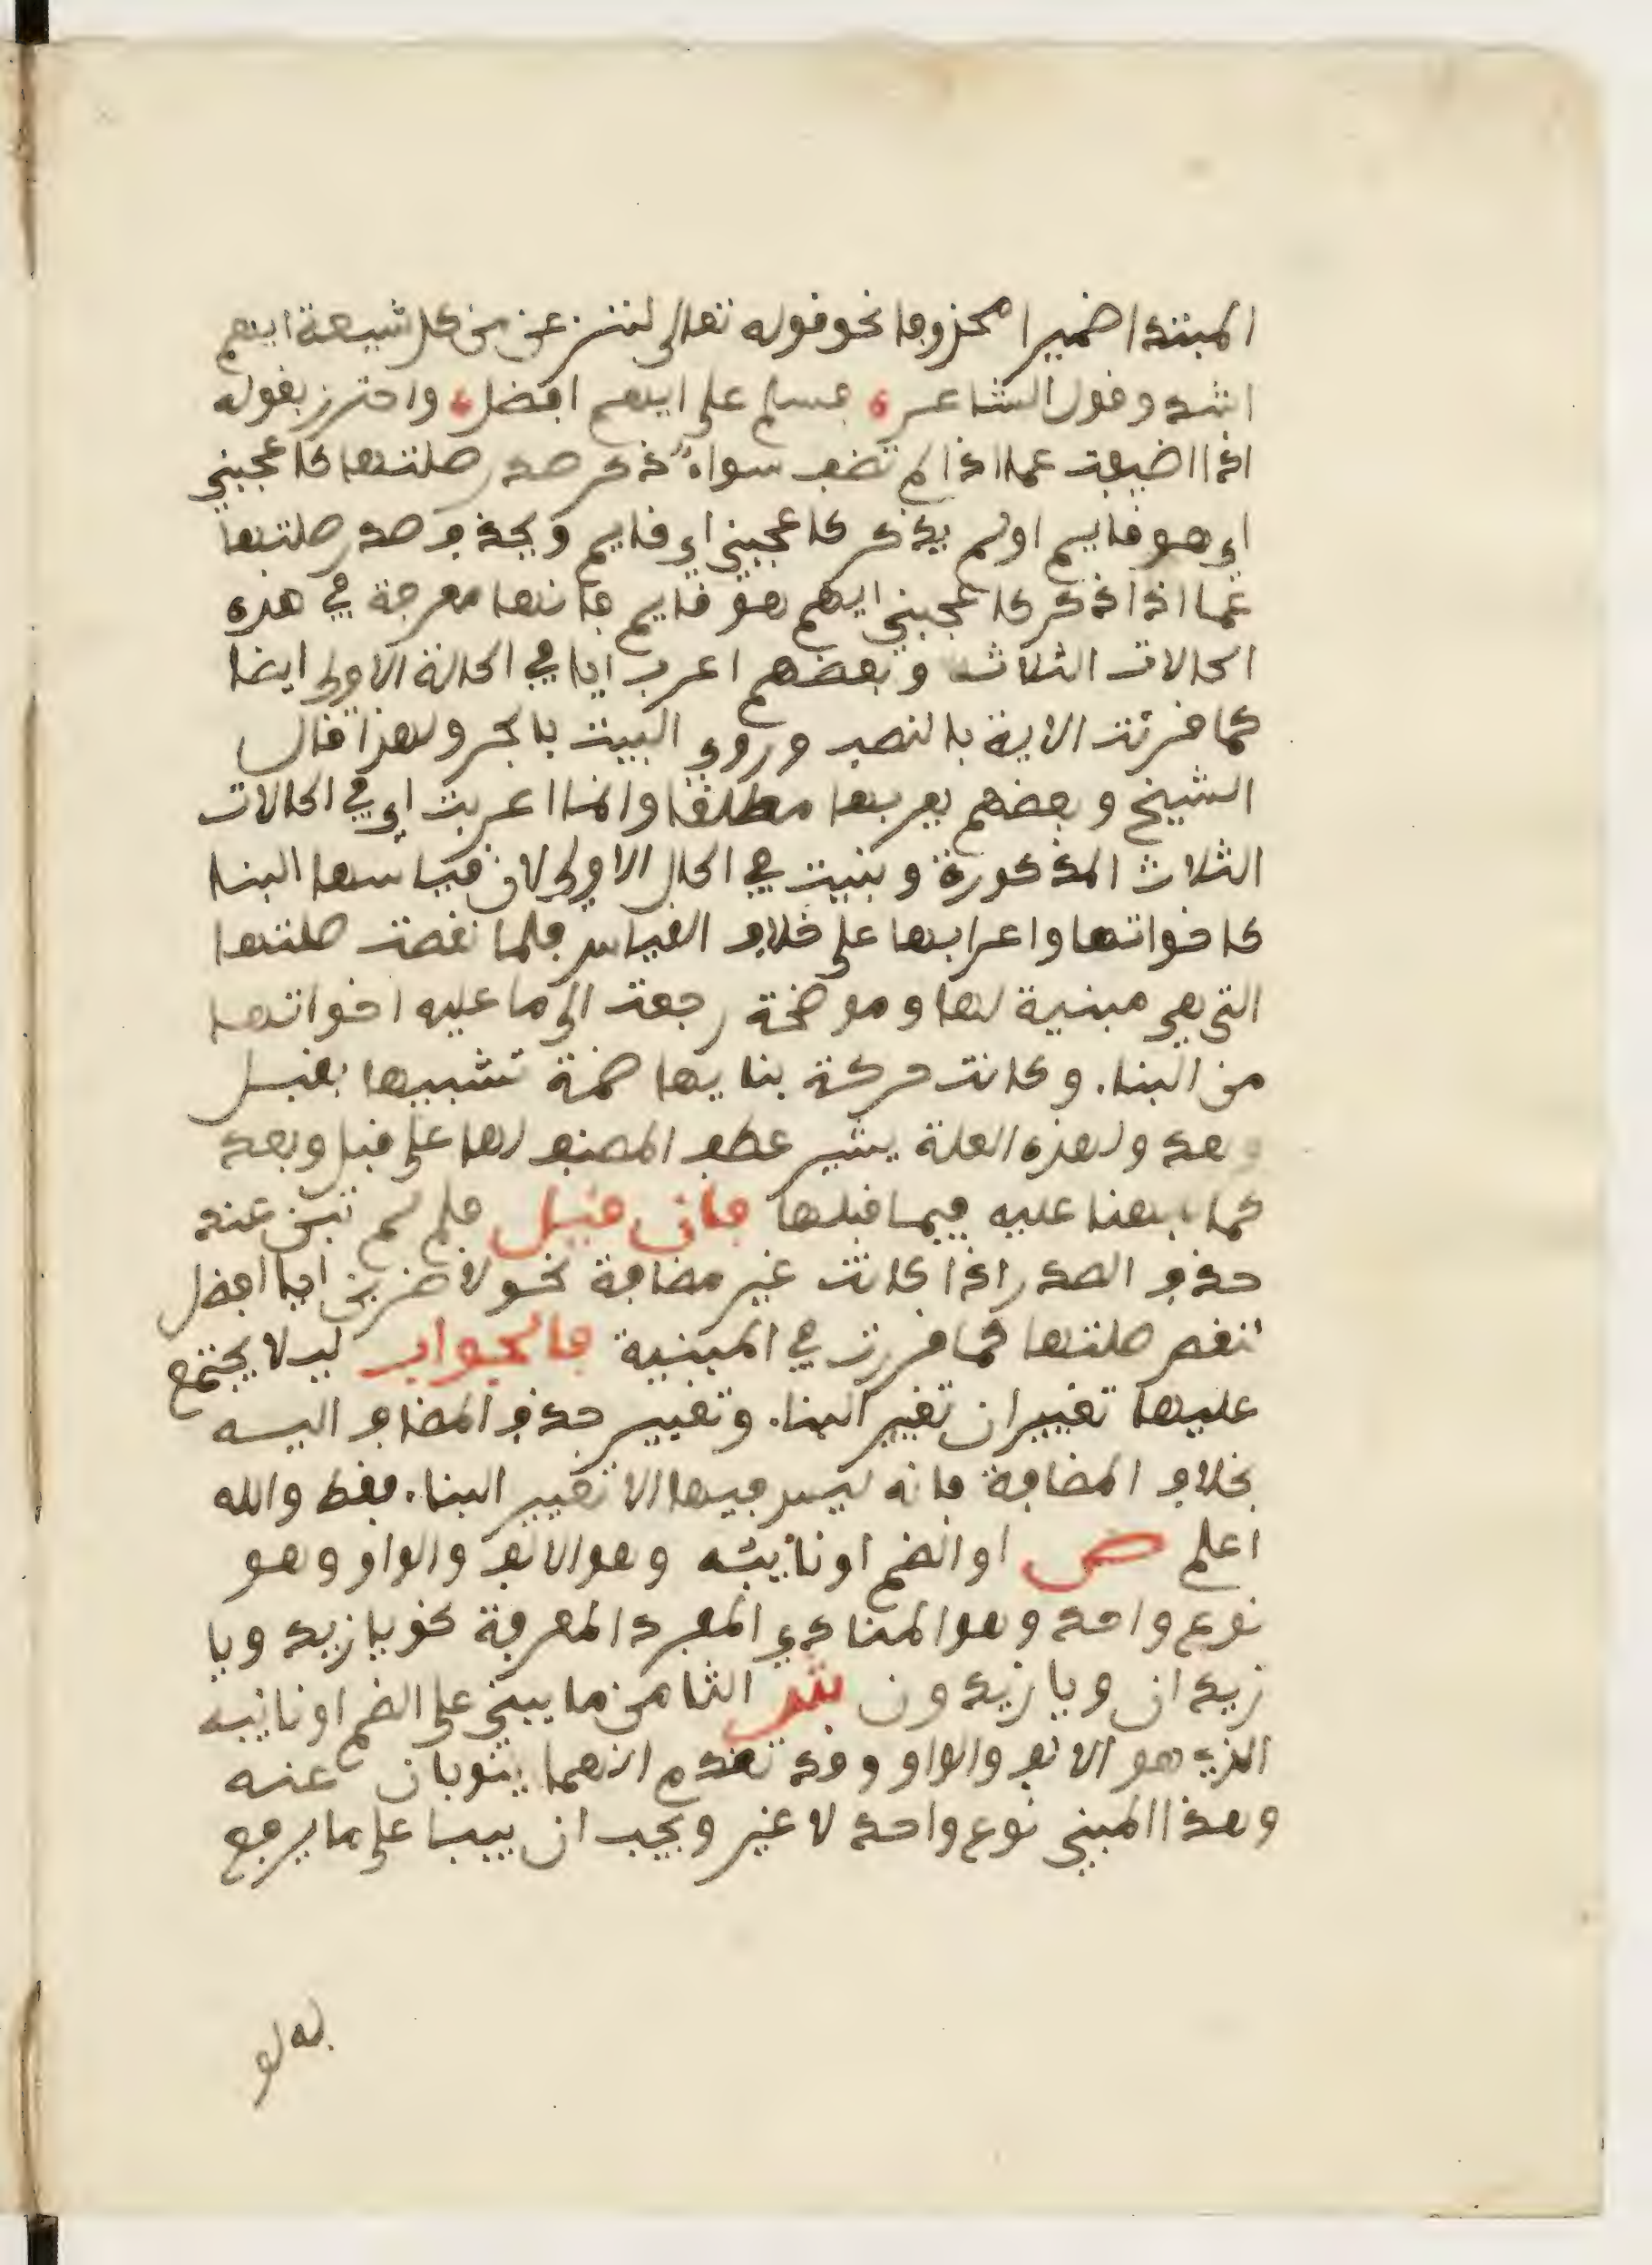 المبتدا ضميرا محذوفا نحو قوله تعالى لننزعن من كل شيعة ايهم
اشد وقول الشاعر ، فسلم على ايهم افضل ، واحترز بقوله
اذا اضيفت عما اذا لم تضف سواء ذكر صدر صلتها كاعجبني
اي هو قايم او لم يذكر كاعجبني اي قايم وبحذف صدر صلتها
عما اذا ذكر كاعجبني ايهم هو قايم فانها معربة في هذه
الحالات الثلاث وبعضهم اعرب ايا في الحالة الاولى ايضا
كما قرئت الاية بالنصب وروي البيت بالجر ولهذا قال
الشيخ وبعضهم يعربها مطلقا وانما اعربت اي في الحالات
الثلاث المذكورة وبنيت في الحال الاولى لان قياسها البنا
كاخواتها واعرابها على خلاف القياس فلما نقصت صلتها
التي هي مبنية لها وموضحة رجعت الى ما عليه اخواتها
من البناء وكانت حركة بنايها ضمة تشبيها بقبل
وبعد ولهذه العلة يشير عطف المصنف لها على قبل وبعد
كما نبهنا عليه فيما قبلها فان قيل فلم لم تبن عند
حذف الصدر اذا كانت غير مضافة نحو لاضربن ايا افضل
لنقص صلتها كما قررت في المبنية فالجواب ليلا يجتمع
عليها تغييران تغيير البناء وتغيير حذف المضاف اليه
بخلاف المضافة فانه ليس فيها الا تغيير البناء فقط والله
اعلم ص او الضم او نائبه وهو الالف والواو وهو
نوع واحد وهو المنادي المفرد المعرفة نحو يا زيد ويا
زيدان ويا زيدون ش الثامن ما يبنى على الضم او نائبه
الذي هو الالف والواو وقد تقدم انهما ينوبان عنه
وهذا المبني نوع واحد لا غير ويجب ان يبنا على ما يرفع
به لو